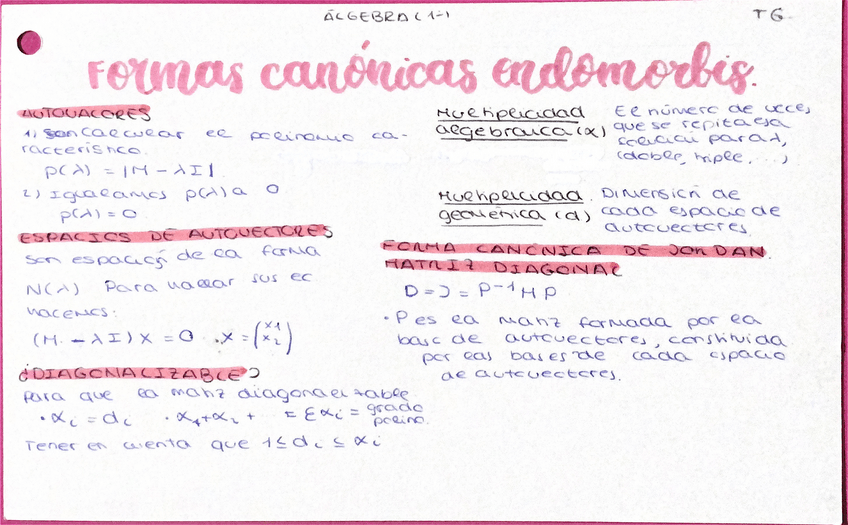 ÁLGEBRA (1-1)
T6
Formas canónicas endomorbis.
AUTOVALORES
1) Son calcular el polinomio ca-
racterístico.
P(λ) = |M - λI|
2) Igualamos p(λ) a 0
p(λ) = 0
ESPACIOS DE AUTOVECTORES
Son espacios de la forma
N(λ) Para hallar sus ec
hacemos:
(M - λI) X = 0 . X = (x1 x2)
¿DIAGONALIZABLE?
Para que la matriz diagonalizable
· αi = di · α1+α2+ ... = Σαi = grado
polino.
Tener en cuenta que 1 ≤ di ≤ αi
Multiplicidad
algebraica (α)
El número de veces
que se repita esa
solución para λ,
(doble, triple, ...)
Multiplicidad
geométrica (d)
Dimensión de
cada espacio de
autovectores.
FORMA CANÓNICA DE JORDAN.
MATRIZ DIAGONAL
D = J = P⁻¹MP
· P es la matriz formada por la
base de autovectores, constituida
por las bases de cada espacio
de autovectores.